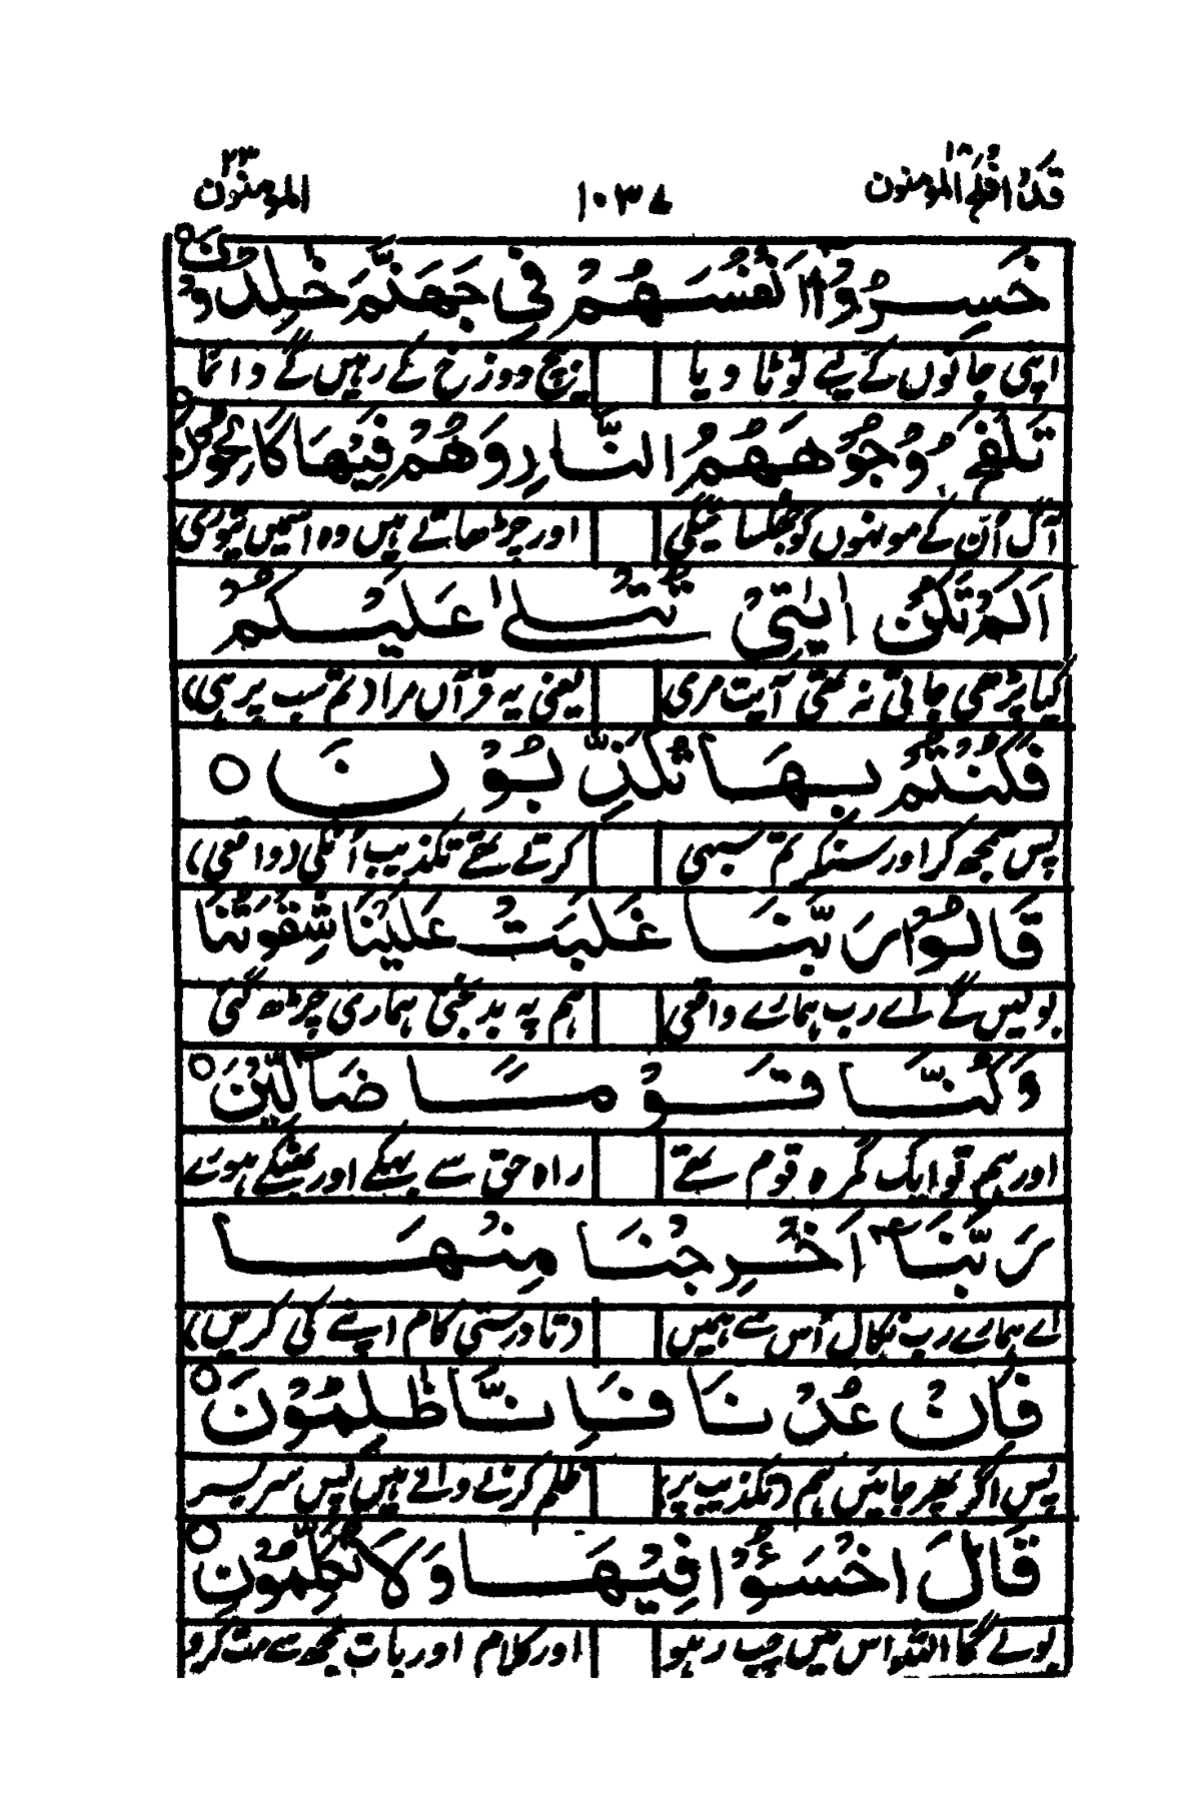 قد افلح المؤمنون ١٨ ١٠٣٧ المؤمنون ٢٣
خَسِرُوْۤا اَنْفُسَهُمْ فِيْ جَهَنَّمَ خٰلِدُوْنَ ○
اپنی جانوں کے لیے ٹوٹا دیا بیچ دوزخ کے رہیں گے دائما
تَلْفَحُ وُجُوْهَهُمُ النَّارُ وَهُمْ فِيْهَا كَالِحُوْنَ ○
آگ اُن کے مونہوں کو جھلسائیگی اور چڑھائے ہیں وہ اسمیں تیوری
اَلَمْ تَكُنْ اٰيٰتِيْ تُتْلٰى عَلَيْكُمْ
کیا پڑھی جاتی نہ تھی آیت مری یعنی یہ قرآں مراد تم سب پر ہی)
فَكُنْتُمْ بِهَا تُكَذِّبُوْنَ ○
پس سمجھ کر اور سنکر تم سبھی کرتے تھے تکذیب اُنکی (واقعی)
قَالُوْا رَبَّنَا غَلَبَتْ عَلَيْنَا شِقْوَتُنَا
بولیں گے اے رب ہمارے واقعی ہم پہ بدبختی ہماری چڑھ گئی
وَكُنَّا قَوْمًا ضَآلِّيْنَ ○
اور ہم تو ایک گمرہ قوم تھے راہ حق سے بہکے اور بھٹکے ہوے
رَبَّنَاۤ اَخْرِجْنَا مِنْهَا
اے ہمارے رب نکال اُس سے ہمیں (تا درستی کام اپنے کی کریں)
فَاِنْ عُدْنَا فَاِنَّا ظٰلِمُوْنَ ○
پس اگر پھر جائیں ہم (تکذیب پر) ظلم کرنے والے ہیں پس سربسر
قَالَ اخْسَئُوْا فِيْهَا وَلَا تُكَلِّمُوْنِ ○
بولے گا اللہ اس میں چپ رہو اور کلام اور بات مجھ سے مت کرو